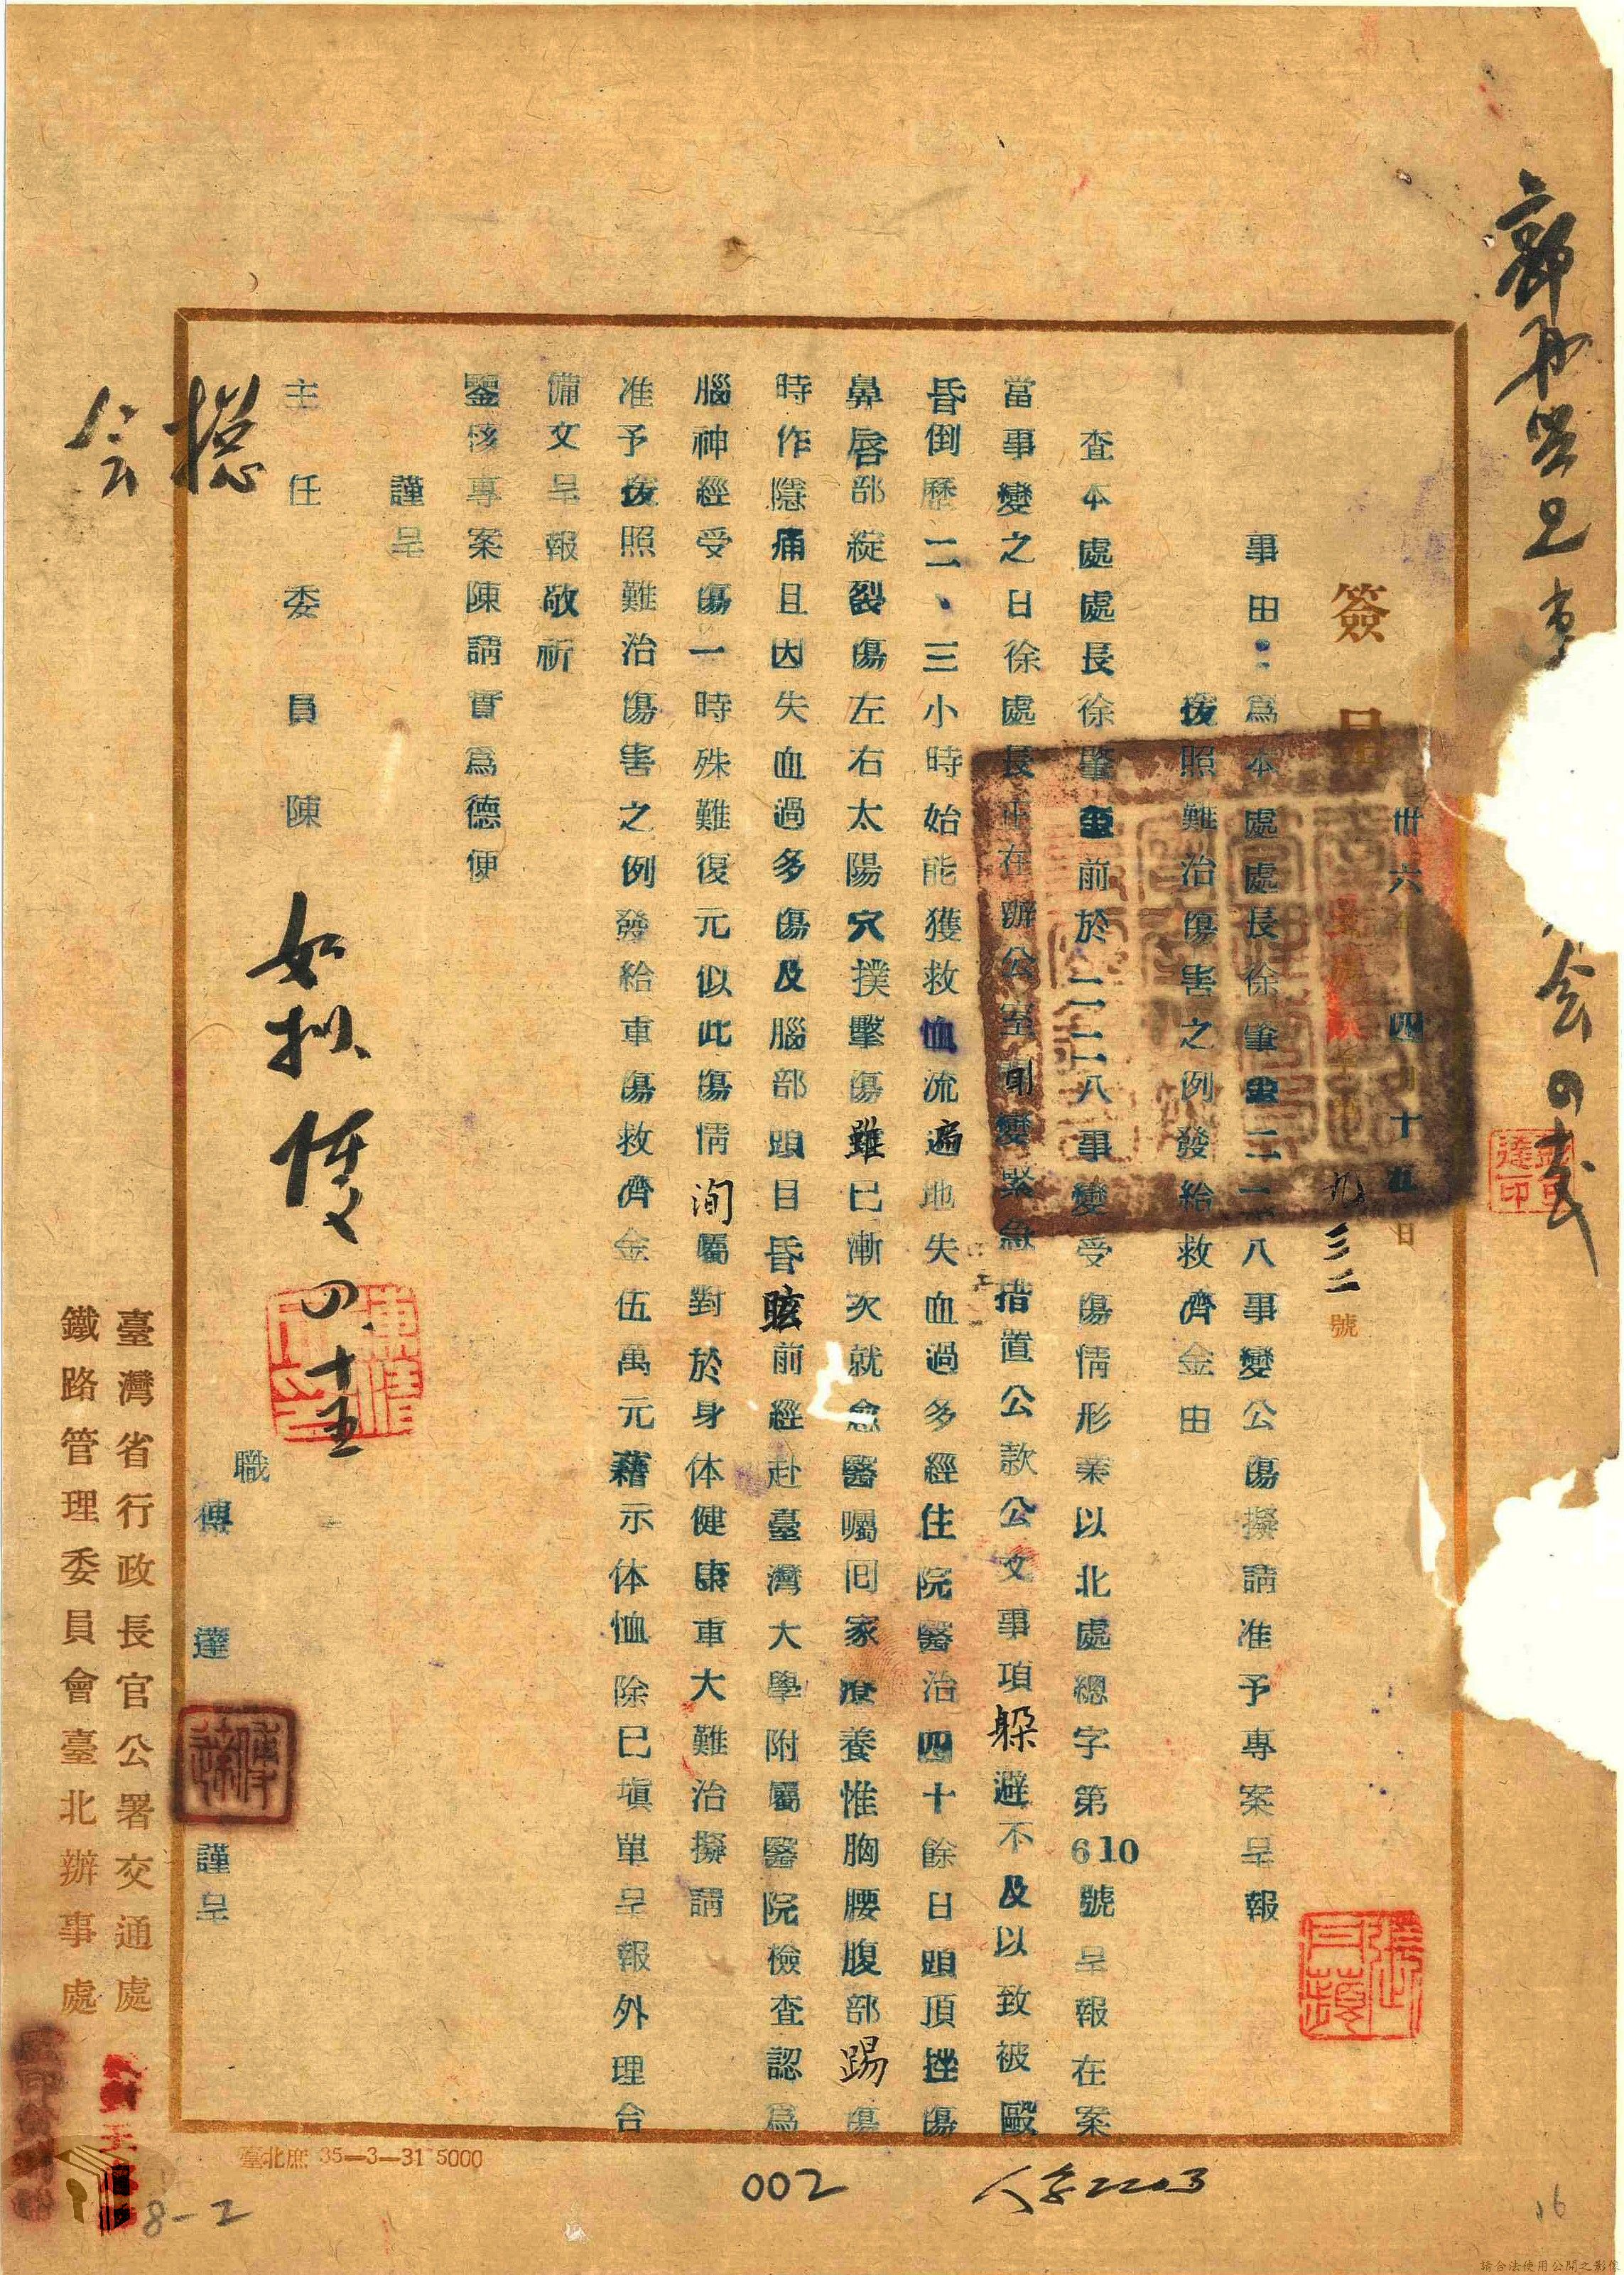 簽呈
卅六年四月十五日
九三二號
事由：爲本處處長徐肇 二二八事變公傷擬請准予專案呈報
援照難治傷害之例發給救濟金由
查本處處長徐肇 前於二二八事變受傷情形業以北處總字第610號呈報在案
當事變之日徐處長正在辦公室 變緊急措置公款公文事項躲避不及以致被毆
昏倒歷二、三小時始能獲救恤流遍地失血過多經住院醫治四十餘日頭頂挫傷
鼻唇部綻裂傷左右太陽穴撲擊傷雖已漸次就愈醫囑回家 養惟胸腰腹部踢傷
時作隱痛且因失血過多傷及腦部頭目昏眩前經赴臺灣大學附屬醫院檢查認爲
腦神經受傷一時殊難復元似此傷情洵屬對於身体健康重大難治擬請
准予援照難治傷害之例發給重傷救濟金伍萬元藉示体恤除已塡單呈報外理合
備文呈報敬祈
鑒核專案陳請實爲德便
謹呈
主任委員陳
如拟 四、十五
總
会
職
傅達謹呈
臺灣省行政長官公署交通處
鐵路管理委員會臺北辦事處
臺北庶 35—3—31 5000
002
人字2203
8-2
16
請合法使用公開之影像